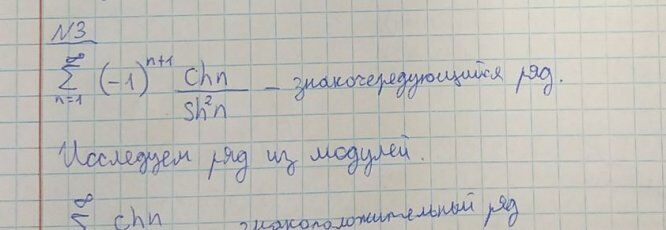 N3
∞
∑ (-1)^{n+1} \frac{ch n}{sh^2 n} — знакочередующийся ряд.
n=1
Исследуем ряд из модулей.
∞
∑ ch n знакоположительный ряд